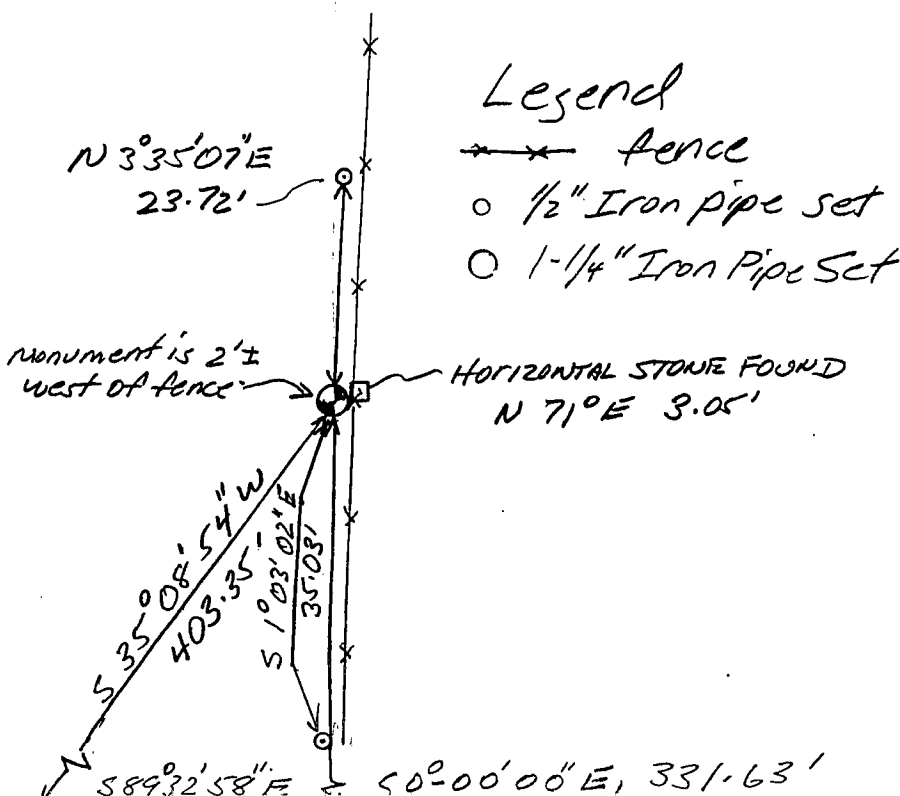 Legend
fence
1/2" Iron pipe set
1-1/4" Iron Pipe Set
N 3°35'07"E
23.72'
monument is 2'±
west of fence
HORIZONTAL STONE FOUND
N 71°E 3.05'
S 35°08'54"W
403.35'
S 1°03'02"E
35.03'
S89°32'58"E
S0°-00'00"E, 331.63'